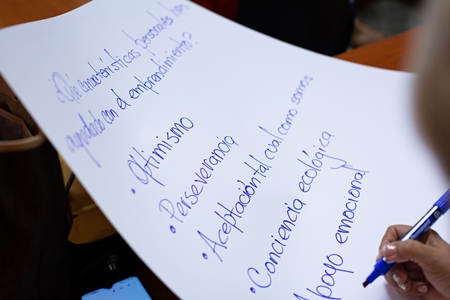 ¿Qué características personales han
ayudado con el emprendimiento?
• Optimismo
• Perseverancia
• Aceptación tal cual como somos
• Conciencia ecológica
Apoyo emocional